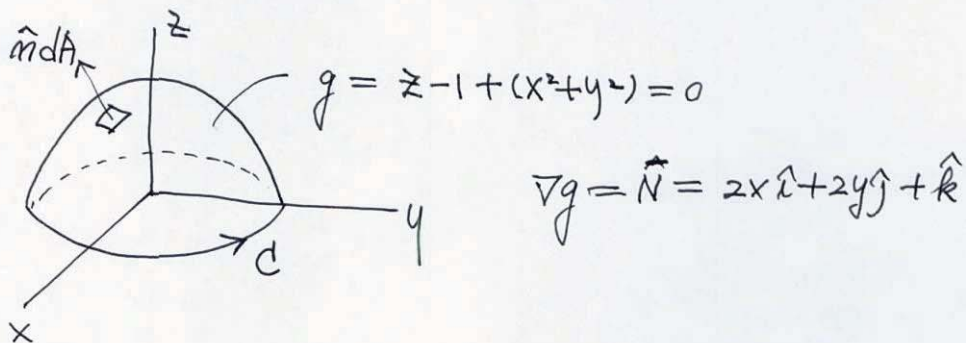 z
n̂dA
g = z-1+(x²+y²) = 0
∇g = N⃗ = 2xî+2yĵ+k̂
y
C
x